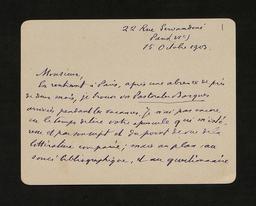 22 Rue Servandoni
Paris VIe
15 Octobre 1903.
1
Monsieur,
En rentrant à Paris, après une absence de près
de deux mois, je trouve vos Pastorales Basques
arrivées pendant les vacances. Je n'ai pas encore
eu le temps de lire votre opuscule qui m'intéresse
et par son sujet et du point de vue de la
littérature comparée; mais au
souci bibliographique, et au questionnaire